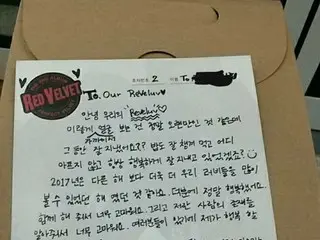 RED VELVET
호차번호 2 이름 To
To. Our ReVeluv♥
안녕 우리의 "Reveluv"♥
이렇게 얼굴 보는 건 정말 오랜만인 것 같은데
가까이서
그동안 잘 지냈어요?? 밥도 잘 챙겨 먹고 어디
아프지 않고 항상 행복하게 잘 지내고 있었겠죠?
2017년은 다른 해 보다 더욱 더 우리 러비들을 많이
볼 수 있었던 해 였던 것 같아요. 덕분에 정말 행복했어요.
함께 해 줘서 너무 고마워요. 그리고 저란 사람의 존재를
알아줘서 너무 고마워요. 여러분들이 있기에 제가 행복할